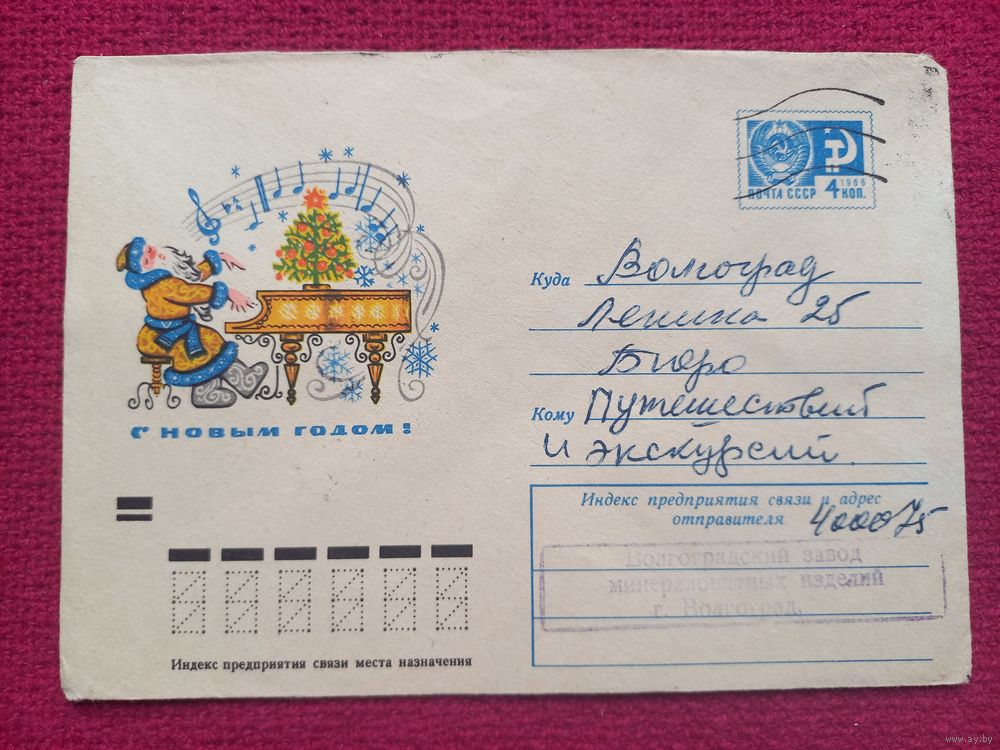 1966
ПОЧТА СССР 4 КОП.
Куда Волгоград
Ленина 25
Бюро
Кому Путешествий
и экскурсий
С НОВЫМ ГОДОМ!
Индекс предприятия связи и адрес
отправителя 400075
Волгоградский завод
минераловатных изделий
г. Волгоград.
Индекс предприятия связи места назначения
www.ay.by